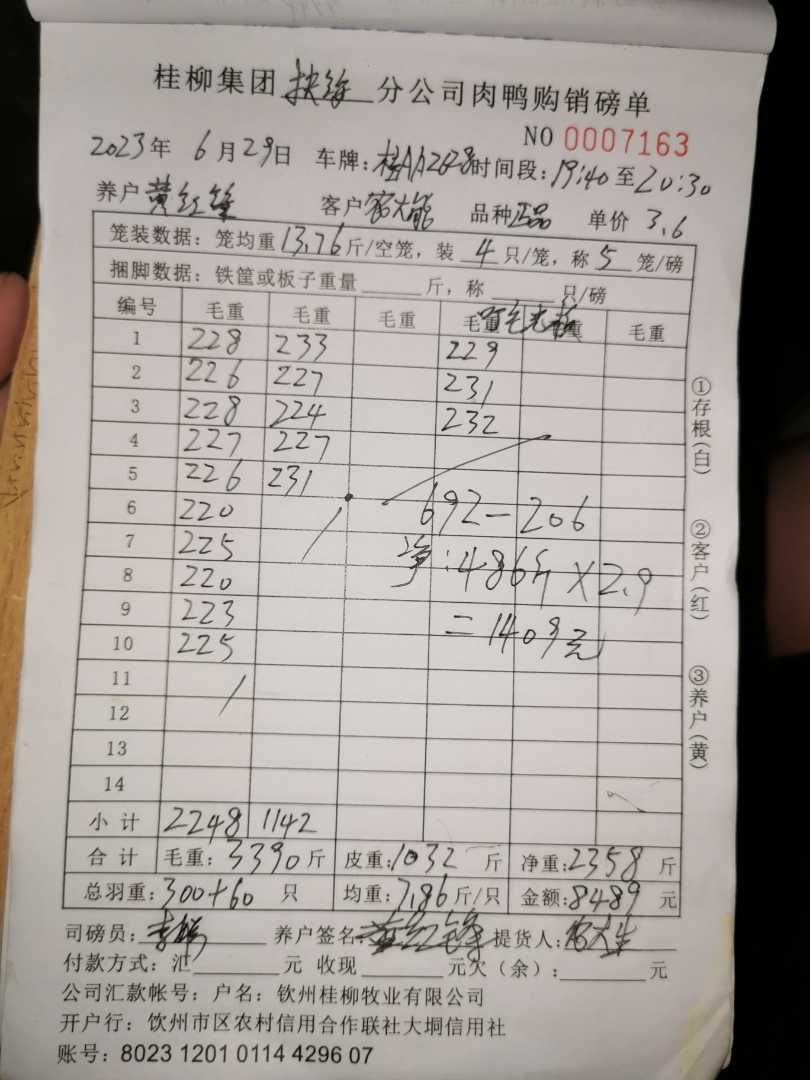 桂柳集团扶绥分公司肉鸭购销磅单
NO 0007163
2023年 6月29日 车牌:桂AA268时间段:19:40至20:30
养户黄红锋 客户 品种正品 单价 3.6
笼装数据:笼均重13.76斤/空笼,装 4 只/笼,称 5 笼/磅
捆脚数据:铁筐或板子重量 斤,称 只/磅
编号 毛重 毛重 毛重 毛重 毛重
1 228 233 229
2 226 227 231
3 228 224 232
4 227 227
5 226 231
6 220 692-206
7 225 净:486斤×2.9
8 220
9 223 =1409元
10 225
11
12
13
14
小计 2248 1142
合计 毛重:3390斤 皮重:1032斤 净重:2358斤
总羽重:300+60 只 均重:7.86斤/只 金额:8489元
司磅员: 养户签名:黄红锋 提货人:
付款方式:汇 元 收现 元欠(余): 元
公司汇款帐号:户名:钦州桂柳牧业有限公司
开户行:饮州市区农村信用合作联社大垌信用社
账号:8023 1201 0114 4296 07
①存根(白)
②客户(红)
③养户(黄)